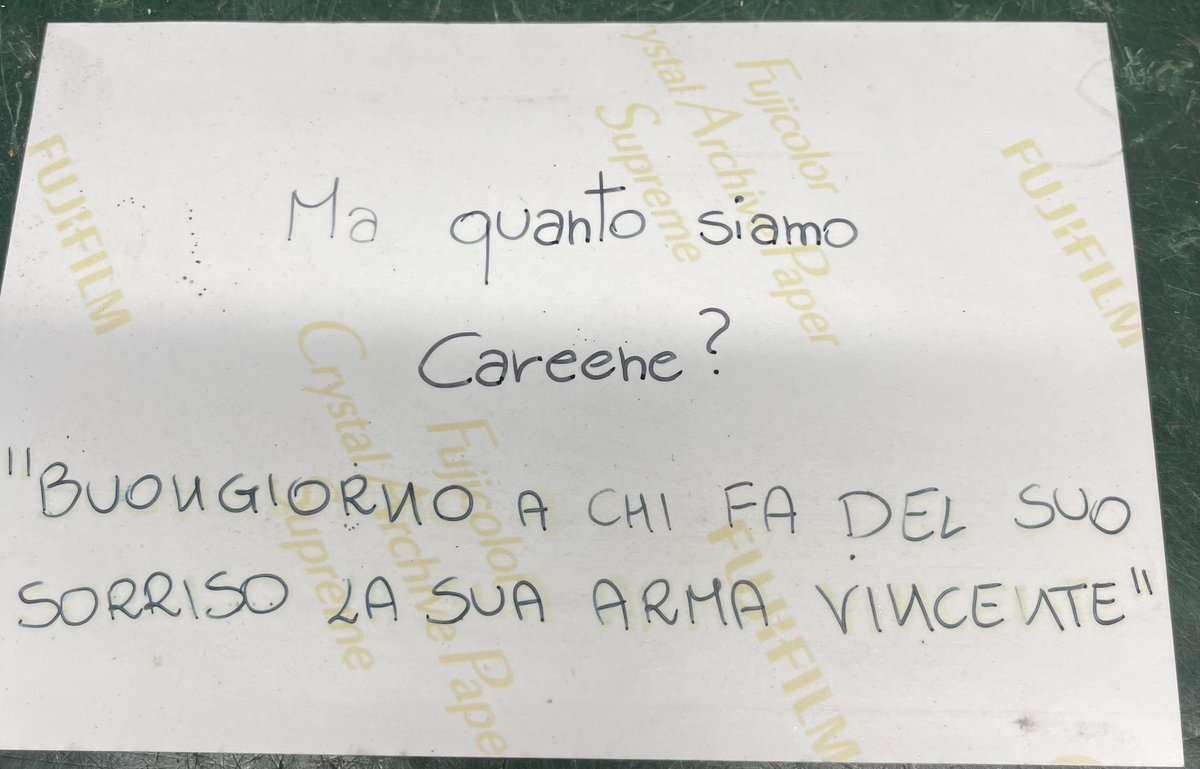 Ma quanto siamo
Careene?
"BUONGIORNO A CHI FA DEL SUO
SORRISO LA SUA ARMA VINCENTE"
FUJIFILM
Fujicolor
ystal Archive Paper
Supreme
FUJIFILM
Fujicolor
Crystal Archive Pape
Supreme
FUJIFILM